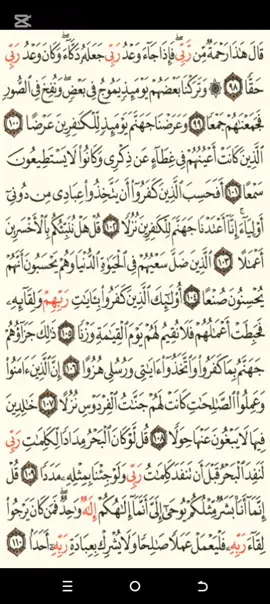 قَالَ هَٰذَا رَحْمَةٌ مِّن رَّبِّي ۖ فَإِذَا جَاءَ وَعْدُ رَبِّي جَعَلَهُ دَكَّاءَ ۖ وَكَانَ وَعْدُ رَبِّي
حَقًّا ٩٨ ۞ وَتَرَكْنَا بَعْضَهُمْ يَوْمَئِذٍ يَمُوجُ فِي بَعْضٍ ۖ وَنُفِخَ فِي الصُّورِ
فَجَمَعْنَاهُمْ جَمْعًا ٩٩ وَعَرَضْنَا جَهَنَّمَ يَوْمَئِذٍ لِّلْكَافِرِينَ عَرْضًا ١٠٠
الَّذِينَ كَانَتْ أَعْيُنُهُمْ فِي غِطَاءٍ عَن ذِكْرِي وَكَانُوا لَا يَسْتَطِيعُونَ
سَمْعًا ١٠١ أَفَحَسِبَ الَّذِينَ كَفَرُوا أَن يَتَّخِذُوا عِبَادِي مِن دُونِي
أَوْلِيَاءَ ۚ إِنَّا أَعْتَدْنَا جَهَنَّمَ لِلْكَافِرِينَ نُزُلًا ١٠٢ قُلْ هَلْ نُنَبِّئُكُم بِالْأَخْسَرِينَ
أَعْمَالًا ١٠٣ الَّذِينَ ضَلَّ سَعْيُهُمْ فِي الْحَيَاةِ الدُّنْيَا وَهُمْ يَحْسَبُونَ أَنَّهُمْ
يُحْسِنُونَ صُنْعًا ١٠٤ أُولَٰئِكَ الَّذِينَ كَفَرُوا بِآيَاتِ رَبِّهِمْ وَلِقَائِهِ
فَحَبِطَتْ أَعْمَالُهُمْ فَلَا نُقِيمُ لَهُمْ يَوْمَ الْقِيَامَةِ وَزْنًا ١٠٥ ذَٰلِكَ جَزَاؤُهُمْ
جَهَنَّمُ بِمَا كَفَرُوا وَاتَّخَذُوا آيَاتِي وَرُسُلِي هُزُوًا ١٠٦ إِنَّ الَّذِينَ آمَنُوا
وَعَمِلُوا الصَّالِحَاتِ كَانَتْ لَهُمْ جَنَّاتُ الْفِرْدَوْسِ نُزُلًا ١٠٧ خَالِدِينَ
فِيهَا لَا يَبْغُونَ عَنْهَا حِوَلًا ١٠٨ قُل لَّوْ كَانَ الْبَحْرُ مِدَادًا لِّكَلِمَاتِ رَبِّي
لَنَفِدَ الْبَحْرُ قَبْلَ أَن تَنفَدَ كَلِمَاتُ رَبِّي وَلَوْ جِئْنَا بِمِثْلِهِ مَدَدًا ١٠٩ قُلْ
إِنَّمَا أَنَا بَشَرٌ مِّثْلُكُمْ يُوحَىٰ إِلَيَّ أَنَّمَا إِلَٰهُكُمْ إِلَٰهٌ وَاحِدٌ ۖ فَمَن كَانَ يَرْجُو
لِقَاءَ رَبِّهِ فَلْيَعْمَلْ عَمَلًا صَالِحًا وَلَا يُشْرِكْ بِعِبَادَةِ رَبِّهِ أَحَدًا ١١٠